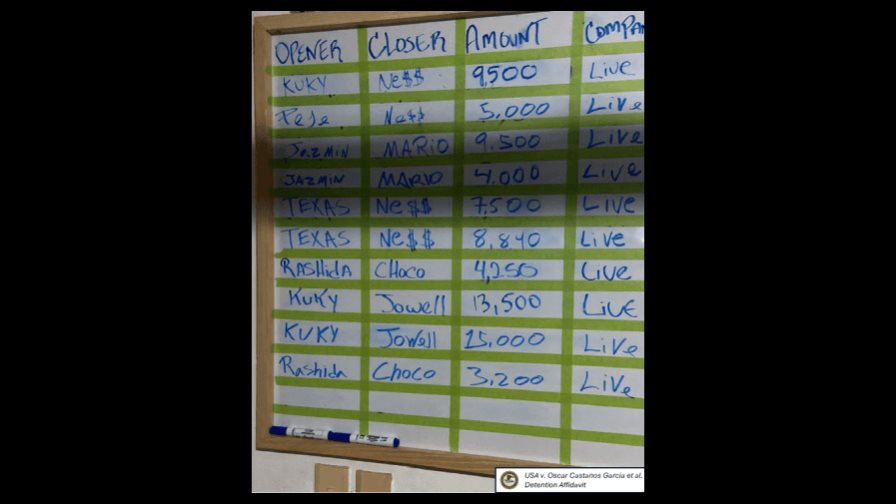 OPENER CLOSER AMOUNT COMPAN
KUKY Ne$$ 9,500 Live
PeJe Ne$$ 5,000 Live
JAZMIN MARiO 9,500 Live
JAZMIN MARiO 4,000 Live
TEXAS Ne$$ 7,500 Live
TEXAS Ne$$ 8,840 Live
RASHidA CHoco 4,250 Live
KUKY Jowell 13,500 LivE
KUKY Jowell 15,000 LiVe
Rashida Choco 3,200 LiVe
USA v. Oscar Castanos Garcia et al.
Detention Affidavit